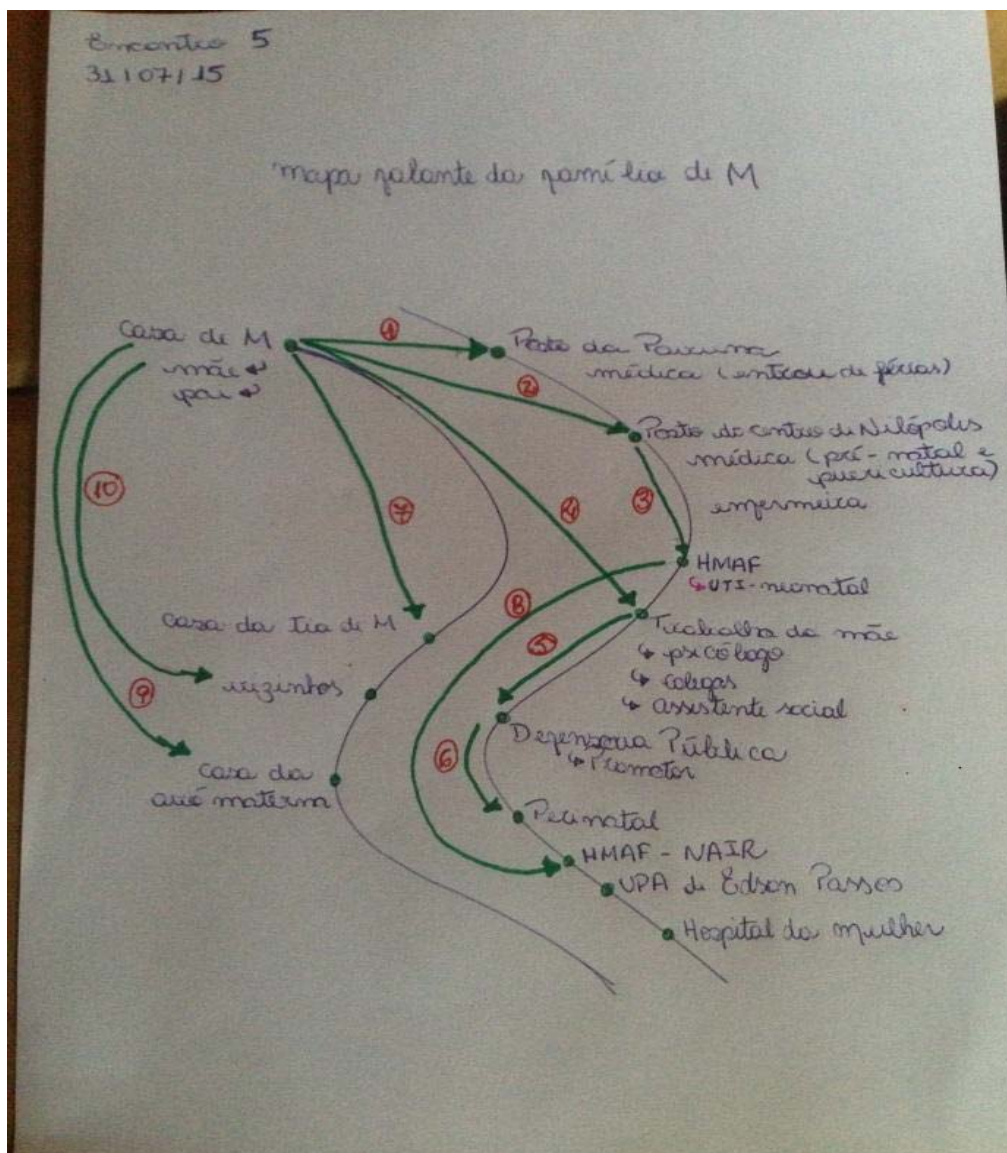 Encontro 5
31/07/15
mapa falante da família de M
Casa de M
mãe ↵
pai ↵
1
Posto da Pavuna
médica (entrou de férias)
2
Posto do Centro de Nilópolis
médica (pré-natal e
puericultura)
enfermeira
3
HMAF
↳ UTI-neonatal
10
7
4
8
Casa da tia de M
Trabalho da mãe
↳ psicólogo
↳ colegas
↳ assistente social
5
vizinhos
9
Defensoria Pública
↳ Promotor
6
casa da
avó materna
Perinatal
HMAF - NAIR
UPA de Edson Passos
Hospital da mulher